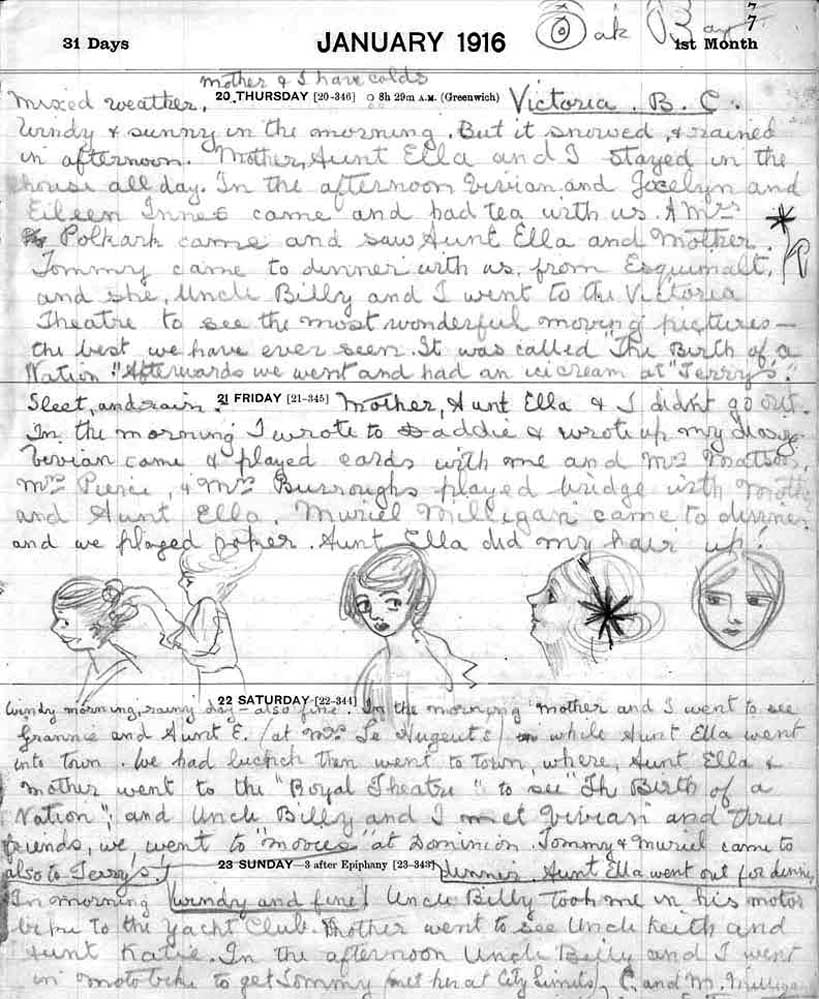 31 Days JANUARY 1916 1st Month
Oak Bay
7
7
mother & I have colds
Mixed weather, 20 THURSDAY [20-346] ○ 8h 29m A.M. (Greenwich) Victoria. B. C.
Windy & sunny in the morning. But it snowed, & rained
in afternoon. Mother, Aunt Ella and I stayed in the
house all day. In the afternoon Vivian and Jocelyn and
Eileen Innes came and had tea with us. A Mrs
Polkark came and saw Aunt Ella and Mother.
Tommy came to dinner with us, from Esquimalt,
and she, Uncle Billy and I went to the Victoria
Theatre to see the most wonderful moving pictures—
the best we have ever seen. It was called "The Birth of a
Nation". Afterwards we went and had an icicream at "Terry's".
Sleet, and rain. 21 FRIDAY [21-345] Mother, Aunt Ella & I didnt go out.
In the morning I wrote to Daddie & wrote up my diary
Vivian came & played cards with me and Mrs Matson,
Mrs Pierce, & Mrs Burroughs played bridge with Mother
and Aunt Ella. Muriel Milligan came to dinner
and we played poker. Aunt Ella did my hair up!
Windy morning, rainy day – also fine. 22 SATURDAY [22-344] In the morning mother and I went to see
Grannie and Aunt E. (at Mrs Le Nugent's) while Aunt Ella went
into town. We had lunch then went to town, where, Aunt Ella &
Mother went to the "Royal Theatre" to see "Th Birth of a
Nation", and Uncle Billy and I met Vivian and three
friends, we went to "movies" at Dominion. Tommy & Muriel came to
also to Terry's! 23 SUNDAY—3 after Epiphany [23-343] dinner. Aunt Ella went out for dinner
In morning windy and fine! Uncle Billy took me in his motor
bike to the Yacht Club. Mother went to see Uncle Keith and
Aunt Katie. In the afternoon Uncle Billy and I went
in moto bike to get Tommy (met her at City Limits), C. and M. Milligan